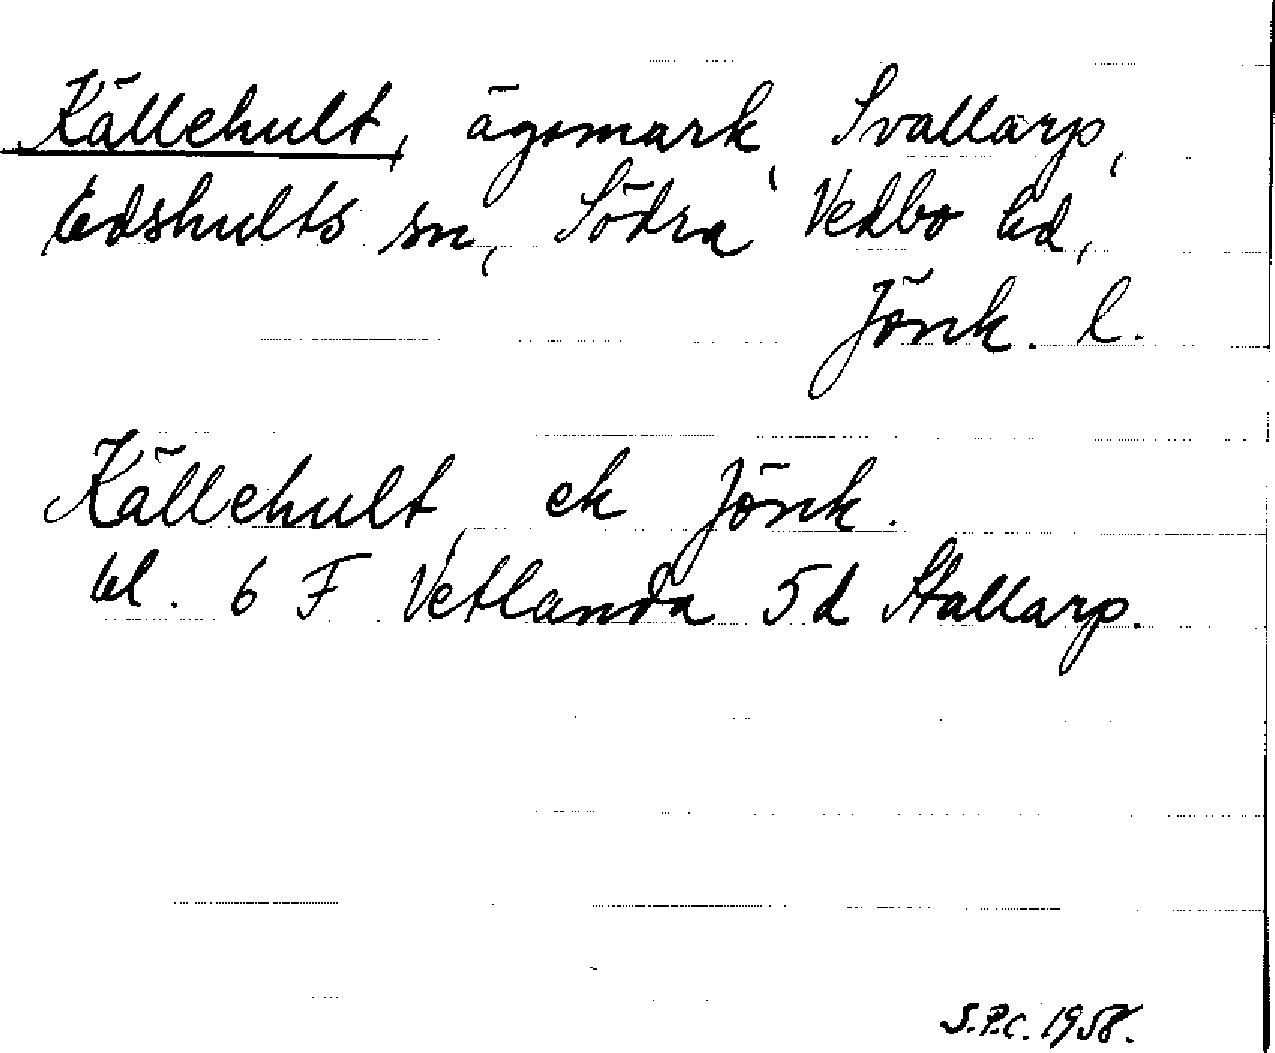 Källehult, ägomark, Svallarp,
Edshults sn, Södra Vedbo hd,
Jönk. l.
Källehult, ek Jönk.
bl. 6 F Vetlanda 5d Stallarp.
S.P.C. 1958.